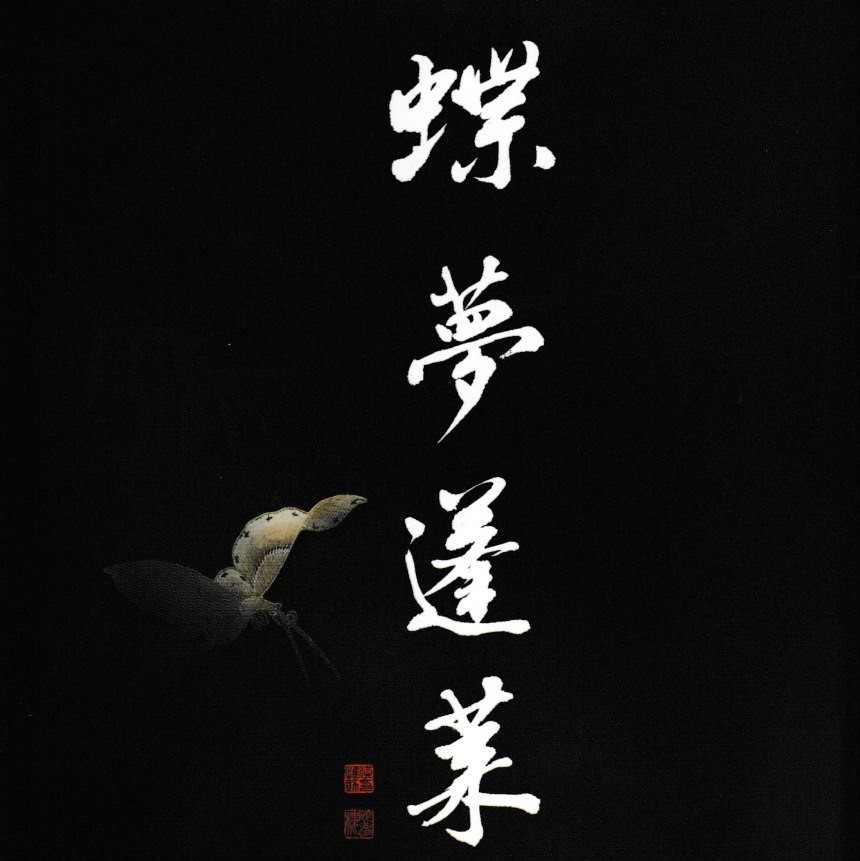 蝶夢蓬萊